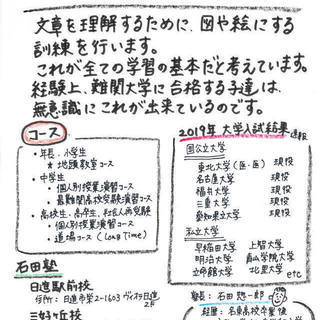 文章を理解するために、図や絵にする
訓練を行います。
これが全ての学習の基本だと考えています。
経験上、難関大学に合格する子達は、
無意識にこれが出来ているのです。
コース
・年長、小学生
★地頭教室コース
・中学生
・個人別授業演習コース
・最難関高校受験演習コース
・高校生、高卒生、社会人再受験
・個人別授業演習コース
・道場コース(Long Time)
2019年 大学入試結果 速報
国公立大学
東北大学(医・医) 現役
名古屋大学 現役
福井大学 現役
三重大学 現役
愛知県立大学 現役
私立大学
早稲田大学 上智大学
明治大学 青山学院大学
立命館大学 北里大学
etc
石田塾
日進駅前校
住所:日進市栄2-1603 ヴィナ日進
2F
三好ヶ丘校
塾長:石田 惣一郎
経歴:名東高校卒業後